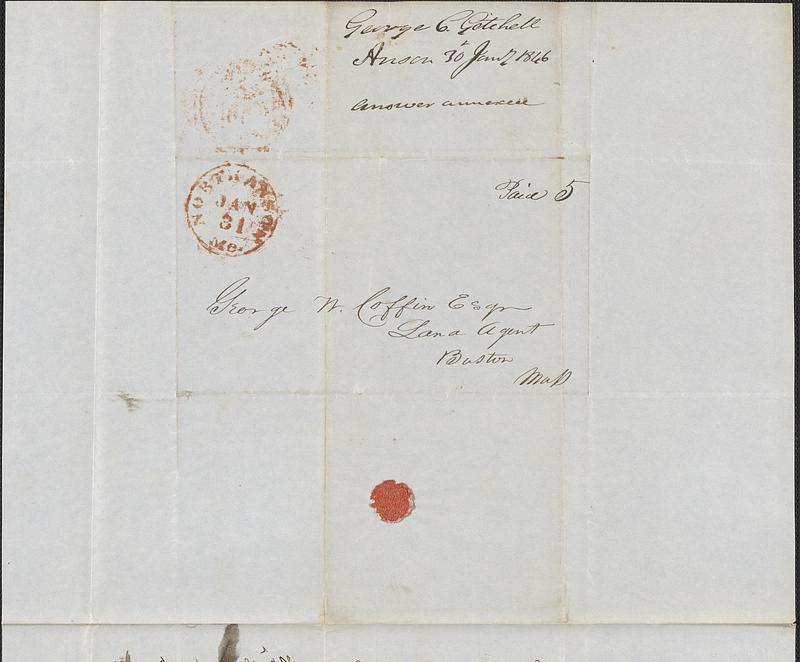 George C. Getchell
Anson 30 Jany 1846
answer annexed
Paid 5
NORTH ANSON
JAN
31
Me.
George W. Coffin Esqr
Land Agent
Boston
Mass